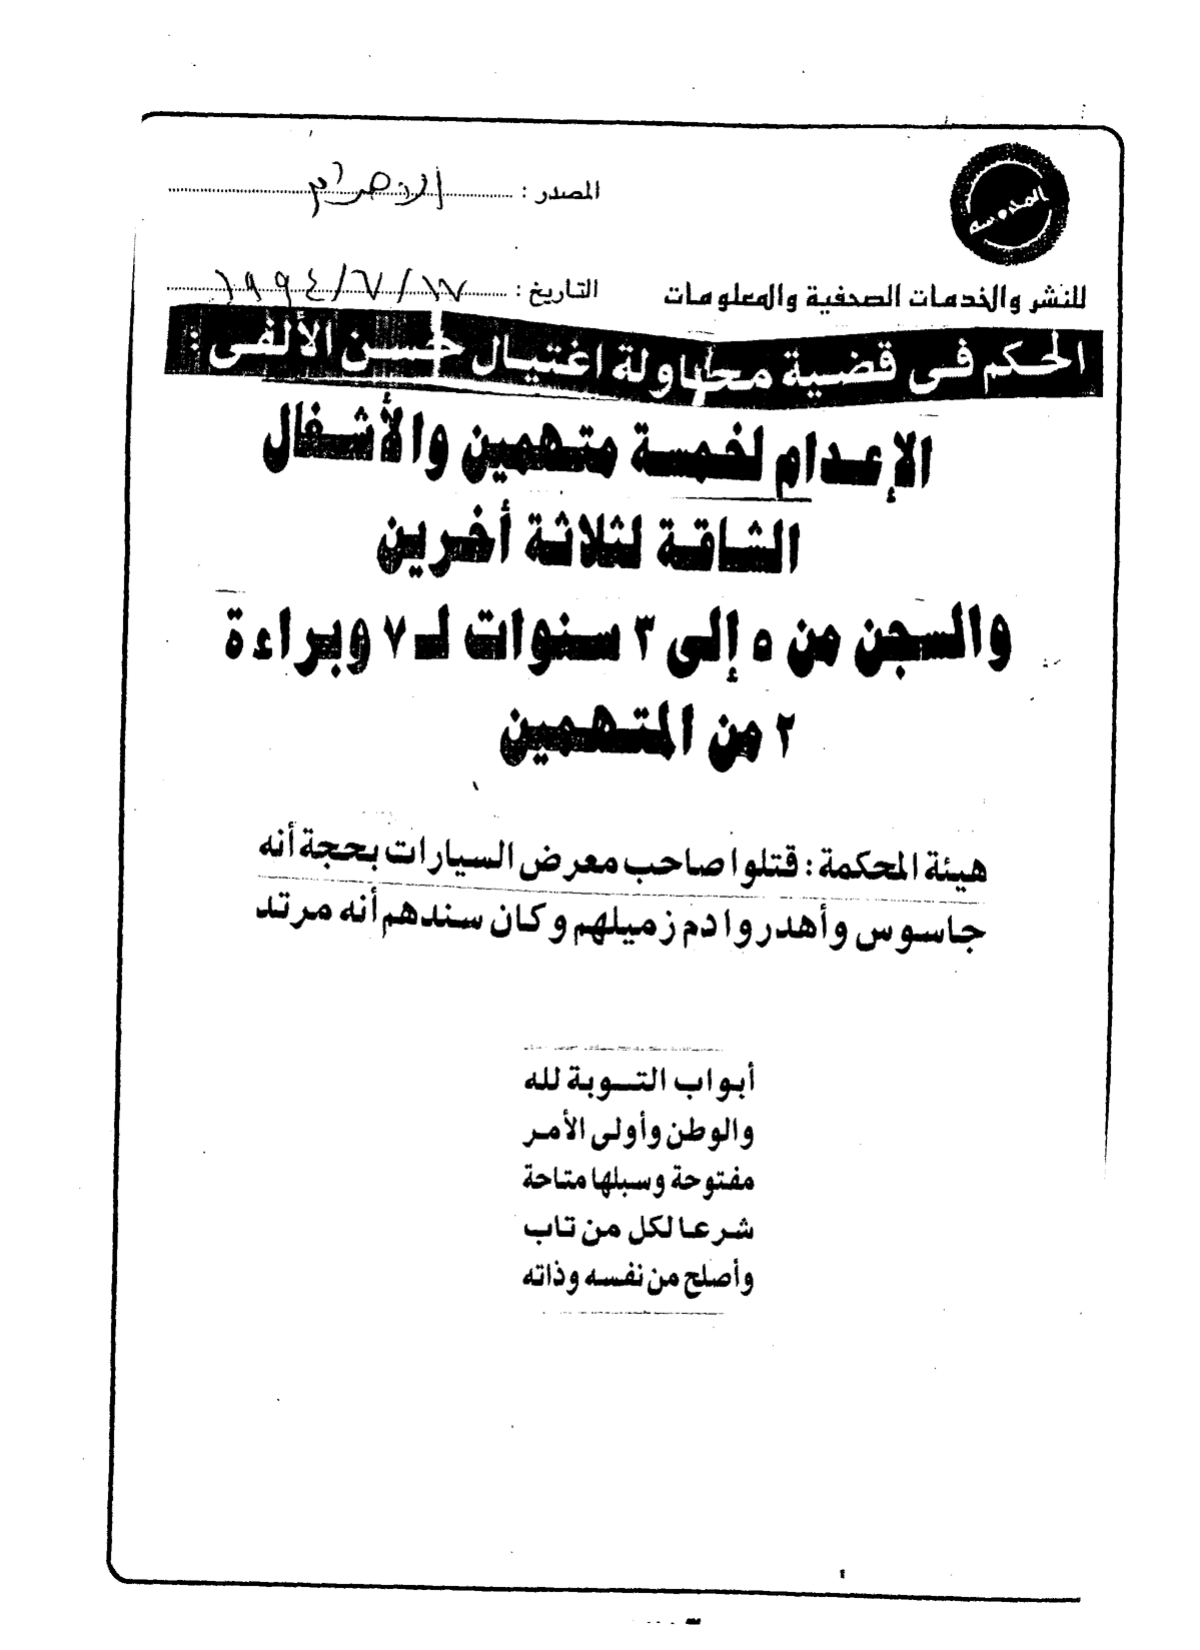 المدروسه
المصدر : الاهرام
للنشر والخدمات الصحفية والمعلومات
التاريخ : ١٧/٧/١٩٩٤
الحكم فى قضية محاولة اغتيال حسن الألفى :
الإعدام لخمسة متهمين والأشغال
الشاقة لثلاثة أخرين
والسجن من ٥ إلى ٣ سنوات لـ ٧ وبراءة
٢ من المتهمين
هيئة المحكمة : قتلوا صاحب معرض السيارات بحجة أنه
جاسوس وأهدروا دم زميلهم وكان سندهم أنه مرتد
أبواب التوبة لله
والوطن وأولى الأمر
مفتوحة وسبلها متاحة
شرعا لكل من تاب
وأصلح من نفسه وذاته